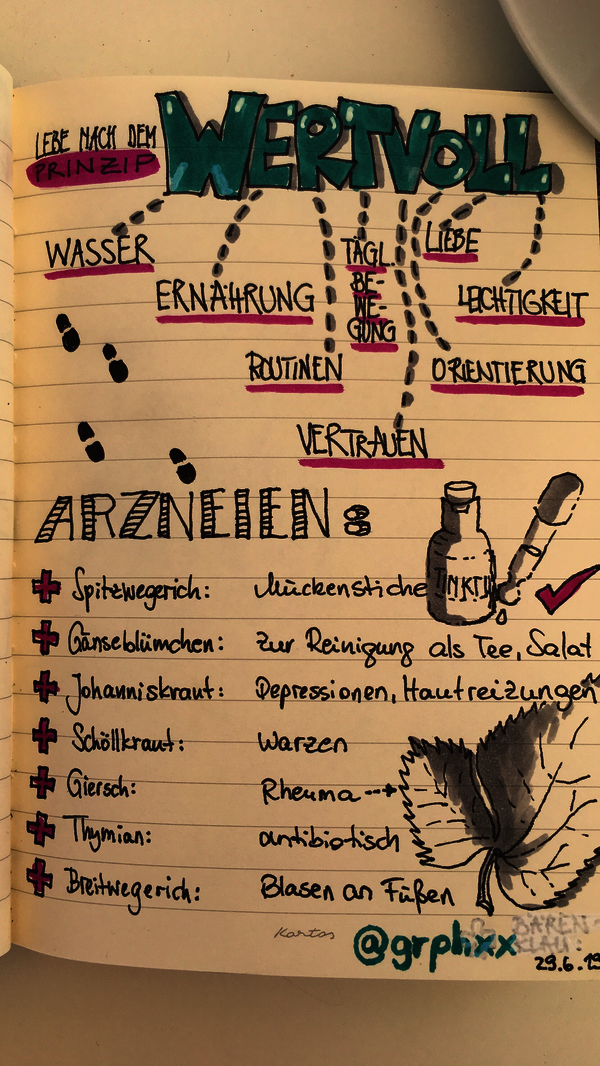 LEBE NACH DEM WERTVOLL
PRINZIP
WASSER
ERNÄHRUNG
ROUTINEN
TÄGL.
BE-
WE-
GUNG
LIEBE
LEICHTIGKEIT
ORIENTIERUNG
VERTRAUEN
ARZNEIEN:
TINKTU
Spitzwegerich: Mückenstiche
Gänseblümchen: Zur Reinigung als Tee, Salat
Johanniskraut: Depressionen, Hautreizungen
Schöllkraut: Warzen
Giersch: Rheuma
Thymian: antibiotisch
Breitwegerich: Blasen an Füßen
Kontos
@grphxx
BÄREN-
KLAU:
29.6.19